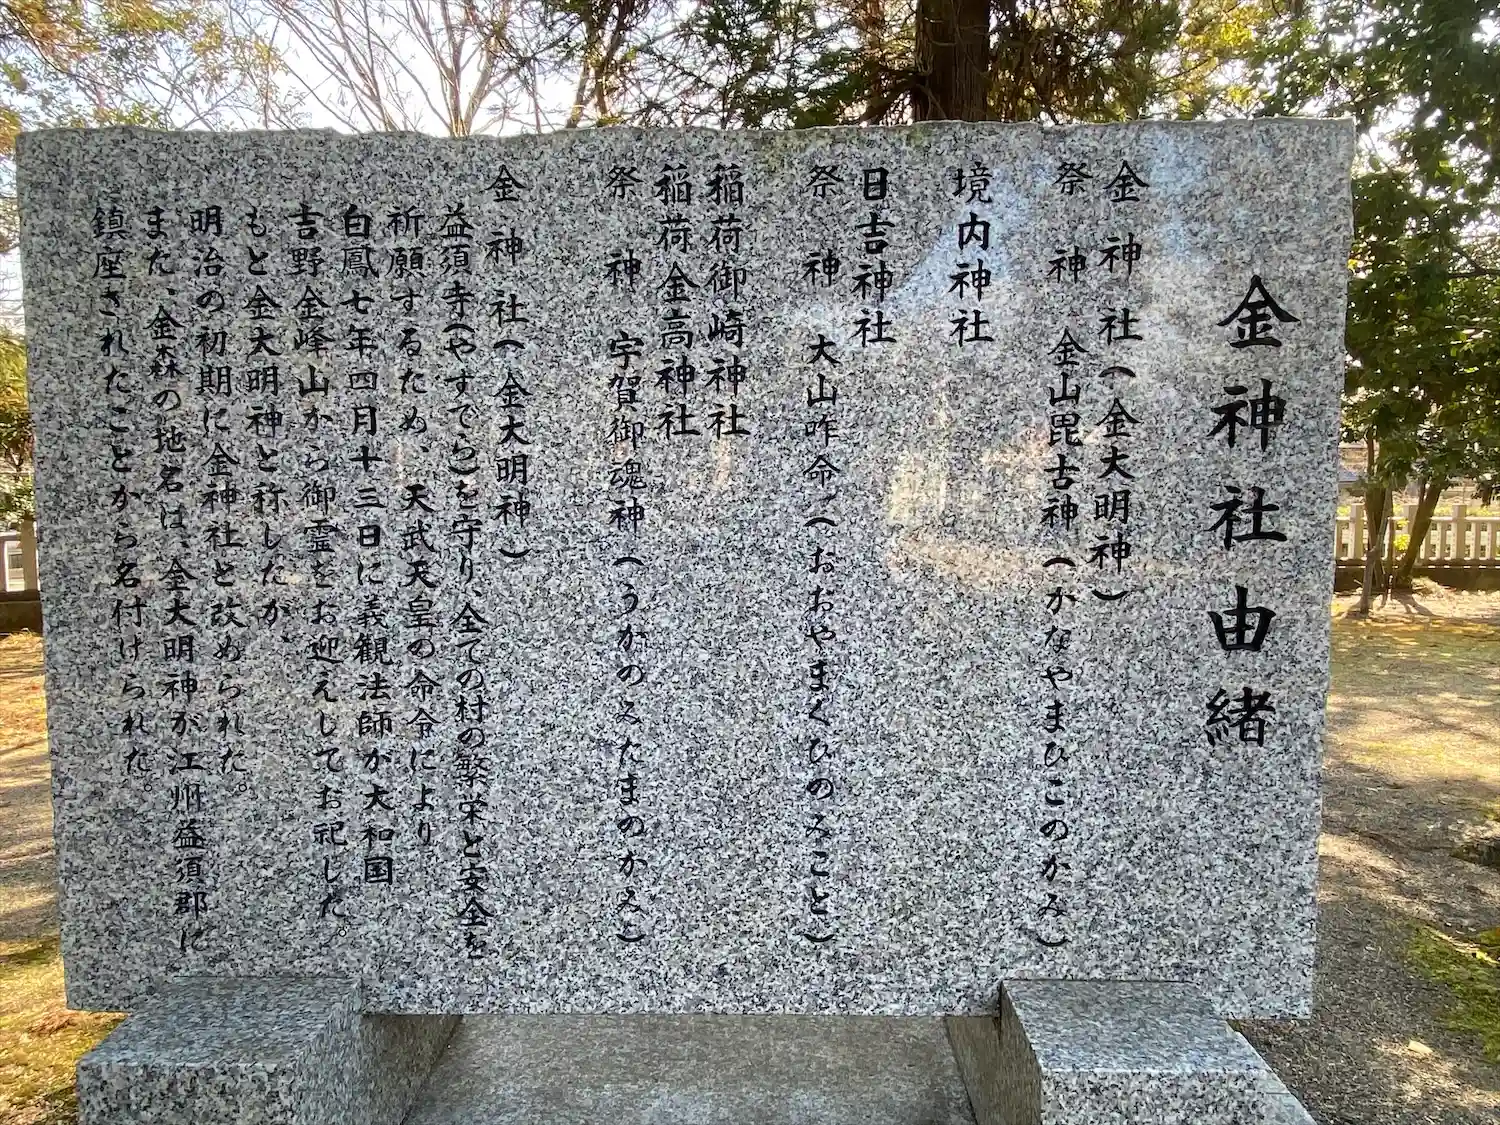 金神社由緒
金神社(金大明神)
祭神 金山毘古神(かなやまひこのかみ)
境内神社
日吉神社
祭神 大山咋命(おおやまくひのみこと)
稲荷御崎神社
稲荷金高神社
祭神 宇賀御魂神(うかのみたまのかみ)
金神社(金大明神)
益須寺(やすでら)を守り、全ての村の繁栄と安全を
祈願するため、天武天皇の命令により
白鳳七年四月十三日に義観法師が大和国
吉野金峰山から御霊をお迎えしてお祀した。
もと金大明神と称したが、
明治の初期に金神社と改められた。
また、金森の地名は、金大明神が江州益須郡に
鎮座されたことから名付けられた。